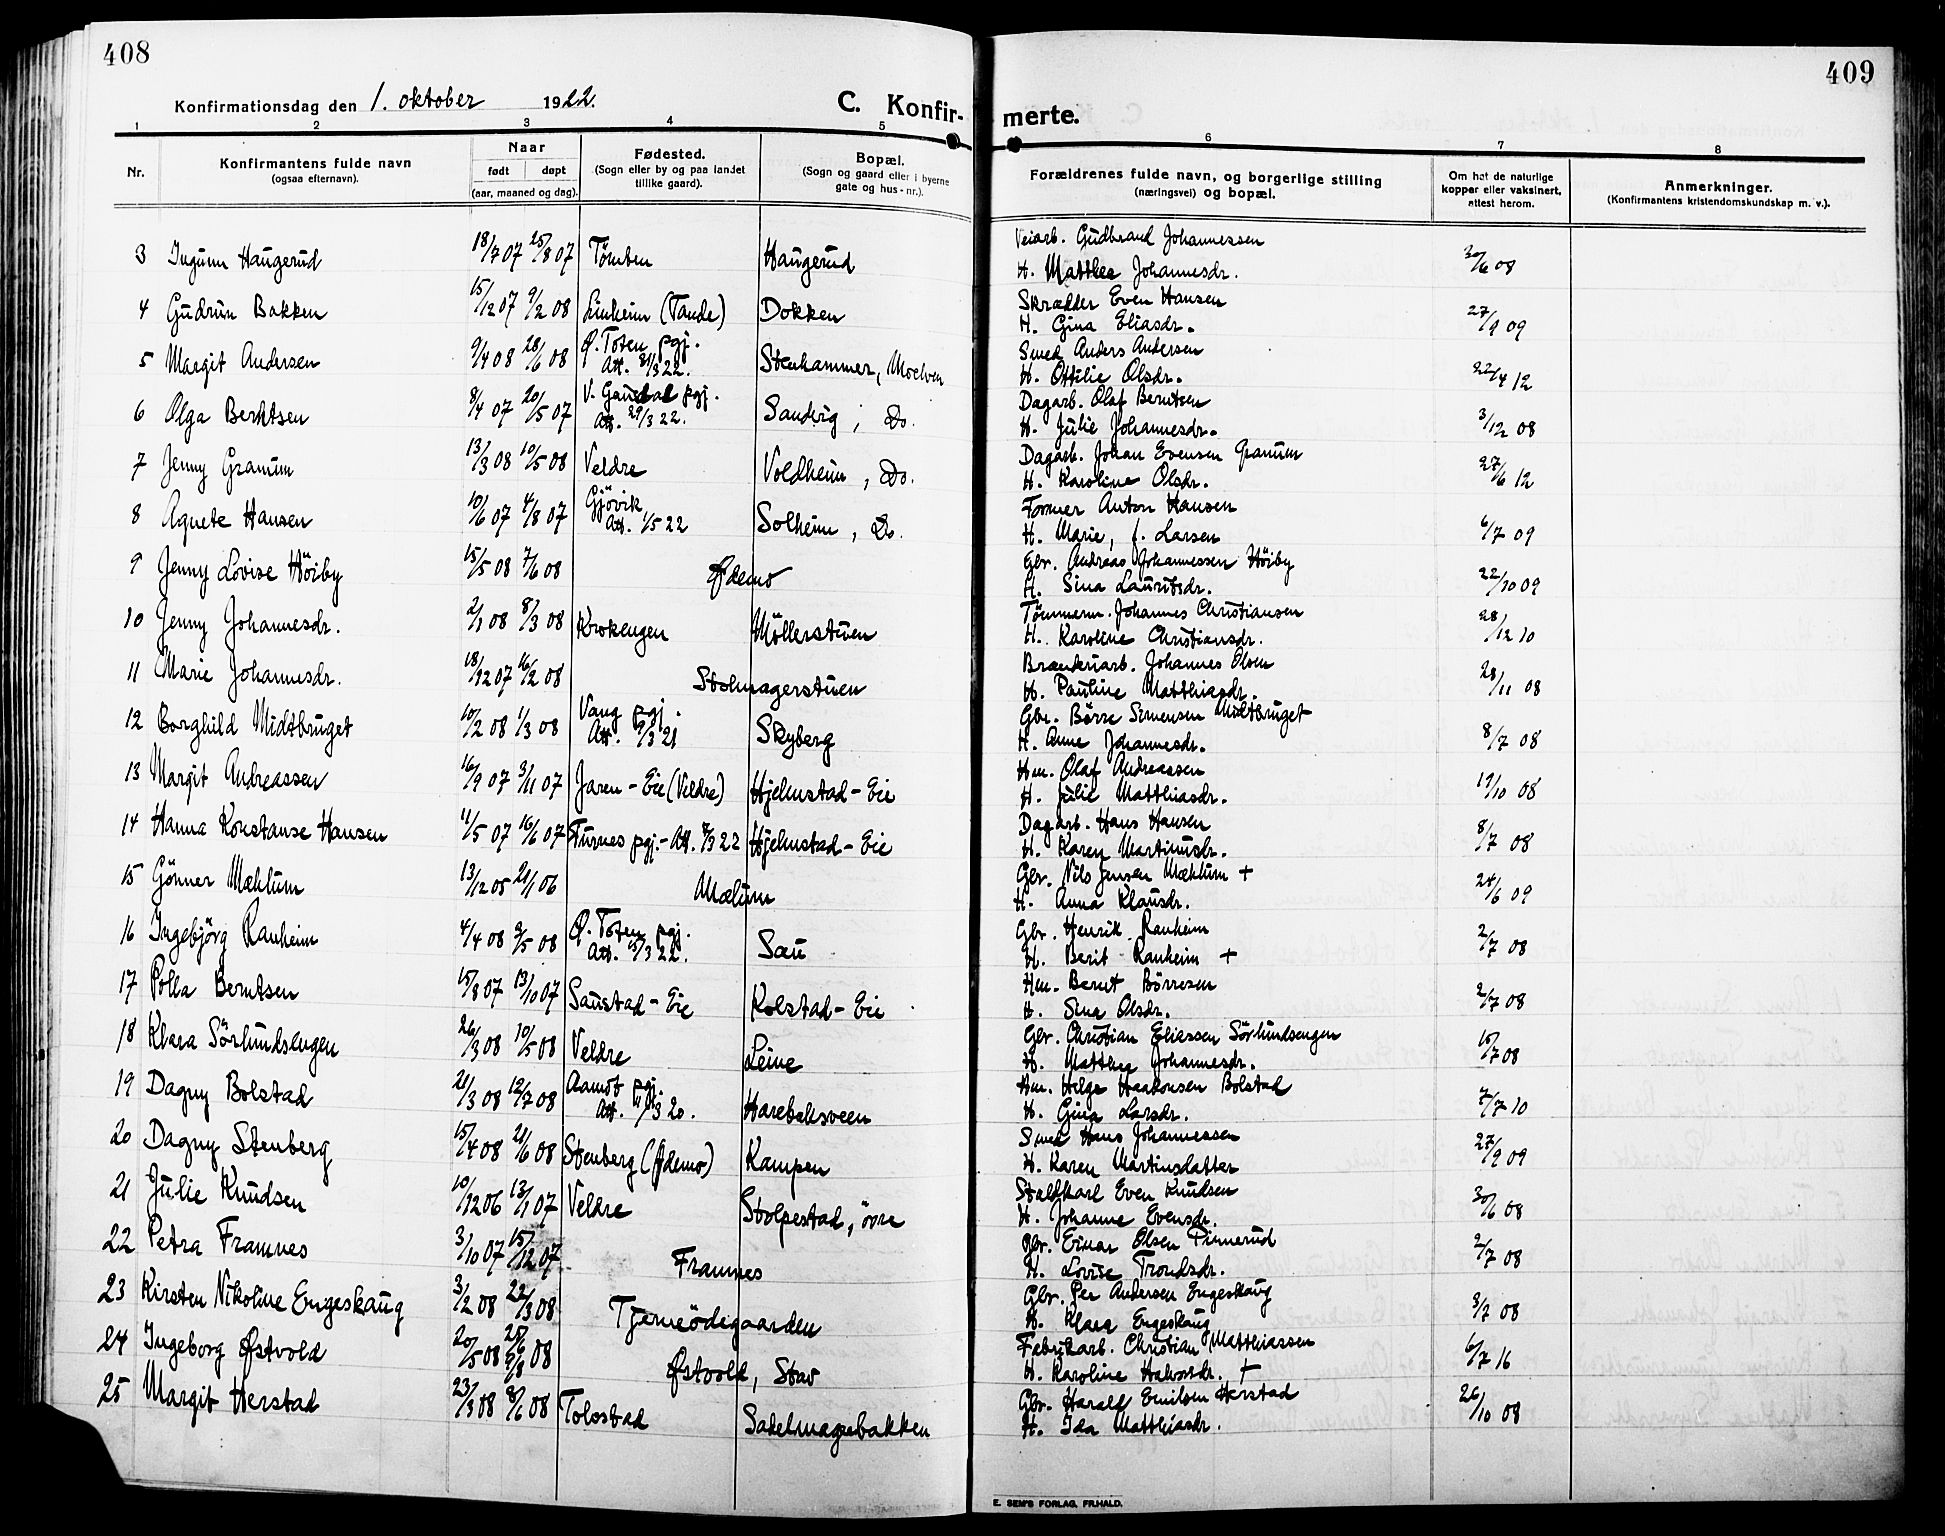 408
409
Konfirmationsdag den 1. oktober 1922.
C. Konfir-
merte.
1 2 3 4 5 6 7 8
Nr.
Konfirmantens fulde navn
(ogsaa efternavn).
Naar
født døpt
(aar, maaned og dag).
Fødested.
(Sogn eller by og paa landet
tillike gaard).
Bopæl.
(Sogn og gaard eller i byerne
gate og hus-nr.).
Forældrenes fulde navn, og borgerlige stilling
(næringsvei) og bopæl.
Om hat de naturlige
kopper eller vaksinert,
attest herom.
Anmerkninger.
(Konfirmantens kristendomskundskap m. v.).
3 Ingunn Haugerud 18/7 07 25/8 07 Tømten Haugerud Veiarb. Gudbrand Johannessen
H. Matthea Johannesdr. 30/6 08
4 Gudrun Bakken 15/12 07 9/2 08 Linheim (Tande) Dokken Skrædder Even Hansen
H. Gina Eliasdr. 27/9 09
5 Margit Andersen 9/4 08 28/6 08 Ø. Toten pgj. Smed Anders Andersen
Att. 31/3 22. Stenhammer, Moelven H. Ottilie Olsdr. 22/4 12
6 Olga Berntsen 8/4 07 20/5 07 V. Gausdal pgj. Dagarb. Olaf Berntsen
Att. 29/3 22. Sandvig, Do. H. Julie Johannesdr. 3/12 08
7 Jenny Granum 13/3 08 10/5 08 Veldre Voldheim, Do. Dagarb. Johan Evensen Granum
H. Karoline Olsdr. 27/6 12
8 Agnete Hansen 10/6 07 4/8 07 Gjövik Former Anton Hansen
Att. 1/5 22 Solheim, Do. H. Marie, f. Larsen 6/7 09
9 Jenny Lovise Höiby 15/5 08 7/6 08 Ødemo Gbr. Andreas Johannessen Höiby
H. Sina Lauritsdr. 22/10 09
10 Jenny Johannesdr. 2/1 08 8/3 08 Krokengen Möllerstuen Tömmerm. Johannes Christiansen
H. Karoline Christiansdr. 28/12 10
11 Marie Johannesdr. 18/12 07 16/2 08 Stolmagerstuen Brænderiarb. Johannes Olsen
H. Pauline Matthiasdr. 28/11 08
12 Borghild Midtbruget 10/2 08 1/3 08 Vang pgj. Gbr. Börre Simensen Midtbruget
Att. 9/3 21 Skyberg H. Anne Johannesdr. 8/7 08
13 Margit Andreassen 16/9 07 3/11 07 Jaren-Eie (Veldre) Hjelmstad-Eie Hm. Olaf Andreassen
H. Julie Matthiasdr. 19/10 08
14 Hanna Konstanse Hansen 11/5 07 16/6 07 Furnes pgj.-Att. 7/3 22 Hjelmstad-Eie Dagarb. Hans Hansen
H. Karen Martinusdr. 8/7 08
15 Gönner Mæhlum 13/12 05 21/1 06 Mælum Gbr. Nils Jensen Mæhlum +
H. Anna Klausdr. 24/6 09
16 Ingebjörg Ranheim 4/4 08 3/5 08 Ø. Toten pgj. Gbr. Henrik Ranheim
Att. 15/3 22. Sau H. Berit Ranheim + 2/7 08
17 Polla Berntsen 15/8 07 13/10 07 Saustad-Eie Kolstad-Eie Hm. Bernt Börresen
H. Sina Olsdr. 2/7 08
18 Klara Sörlundsengen 26/3 08 10/5 08 Veldre Leine Gbr. Christian Eliassen Sörlundsengen
H. Matthea Johannesdr. 15/7 08
19 Dagny Bolstad 21/3 08 12/7 08 Aamot pgj. Hm. Helge Haakonsen Bolstad
Att. 11/3 20. Harebaksveen H. Gina Larsdr. 7/7 10
20 Dagny Stenberg 15/4 08 21/6 08 Stenberg (Ødemo) Kampen Smed Hans Johannessen
H. Karen Martinsdatter 27/9 09
21 Julie Knudsen 10/12 06 13/1 07 Veldre Stolpestad, övre Staldkarl Even Knudsen
H. Johanne Evensdr. 30/6 08
22 Petra Framnes 3/10 07 15/12 07 Framnes Gbr. Einar Olsen Pinnerud
H. Lovise Trondsdr. 2/7 08
23 Kirsten Nikoline Engeskaug 3/2 08 22/3 08 Tjerneödegaarden Gbr. Per Andersen Engeskaug
H. Klara Engeskaug 3/7 08
24 Ingeborg Østvold 20/5 08 9/8 08 Østvold, Stav Fabrikarb. Christian Matthiassen
H. Karoline Halvorsdr. + 6/7 16
25 Margit Herstad 23/3 08 8/6 08 Tolostad Salmagerbakken Gbr. Harald Emilsen Herstad
H. Ida Matthiasdr. 26/10 08
E. SEM'S FORLAG, FR.HALD.